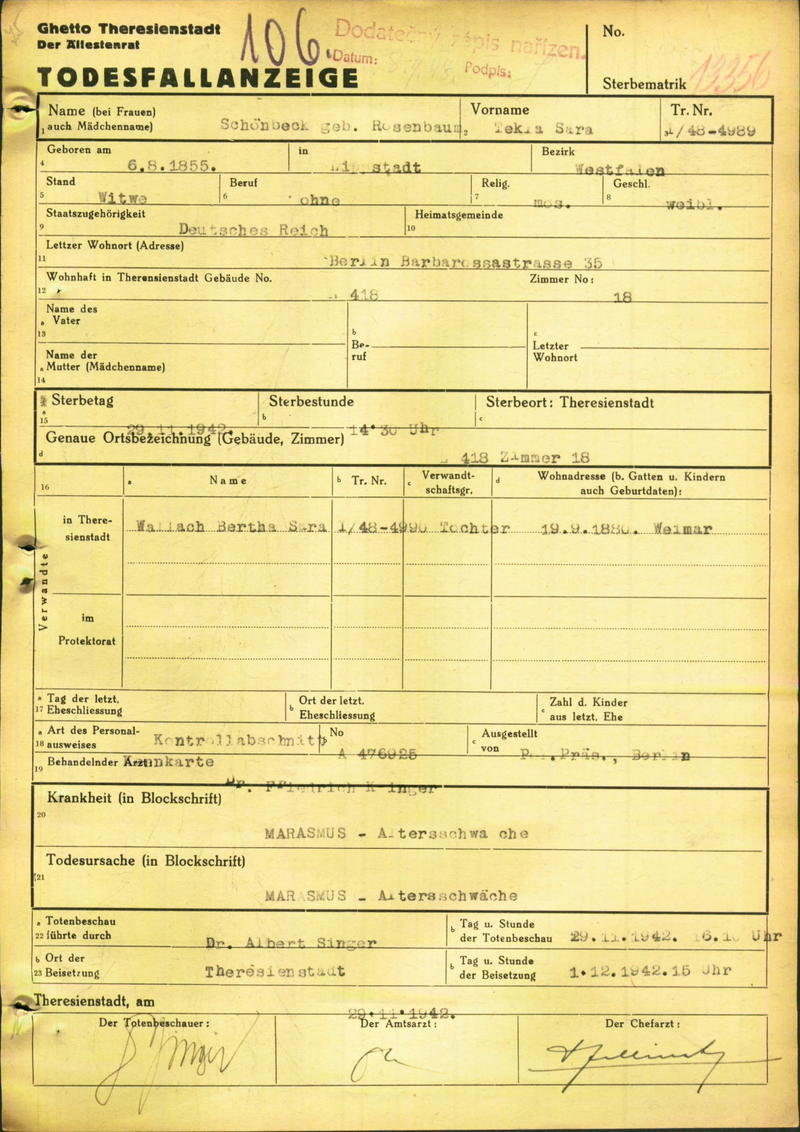 Ghetto Theresienstadt
Der Ältestenrat
TODESFALLANZEIGE
106
Dodatečný zápis nařízen.
Datum:
Podpis:
No.
Sterbematrik 13356
Name (bei Frauen)
1 auch Mädchenname)
Schönbeck geb. Rosenbaum
Vorname
2 Sara
Tr. Nr.
3 I/48-4989
Geboren am
4 6.8.1855.
in
stadt
Bezirk
Westfalen
Stand
5 Witwe
Beruf
6 ohne
Relig.
7 mos.
Geschl.
8 weibl.
Staatszugehörigkeit
9 Deutsches Reich
Heimatsgemeinde
10
Lettzer Wohnort (Adresse)
11 Berlin Barbarossastrasse 35
Wohnhaft in Therensienstadt Gebäude No.
12 418
Zimmer No:
18
Name des
a Vater
13
Name der
a Mutter (Mädchenname)
14
b
Be-
ruf
c
Letzter
Wohnort
Sterbetag
a
15 29.11.1942.
Sterbestunde
b 14.30 Uhr
Sterbeort: Theresienstadt
c
Genaue Ortsbezeichnung (Gebäude, Zimmer)
d 418 Zimmer 18
16
a Name
b Tr. Nr.
c Verwandt-
schaftsgr.
d Wohnadresse (b. Gatten u. Kindern
auch Geburtdaten):
Verwandte
in There-
sienstadt
Wallach Bertha Sara I/48-4990 Tochter 19.9.1880. Weimar
im
Protektorat
a Tag der letzt.
17 Eheschliessung
b Ort der letzt.
Eheschliessung
c Zahl d. Kinder
aus letzt. Ehe
a Art des Personal-
18 ausweises
Kontrollabschnitt
b No
A 476925
c Ausgestellt
von
Präs., Berlin
Behandelnder Arzt
19
nkarte
Dr. Friedrich
Krankheit (in Blockschrift)
20
MARASMUS - Altersschwa che
Todesursache (in Blockschrift)
21
MARASMUS - Altersschwäche
a Totenbeschau
22 führte durch
Dr. Albert Singer
b Tag u. Stunde
der Totenbeschau
29.11.1942. Uhr
b Ort der
23 Beisetzung
Theresienstadt
b Tag u. Stunde
der Beisetzung
1.12.1942.15 Uhr
Theresienstadt, am
29.11.1942.
Der Totenbeschauer:
Der Amtsarzt:
Der Chefarzt: